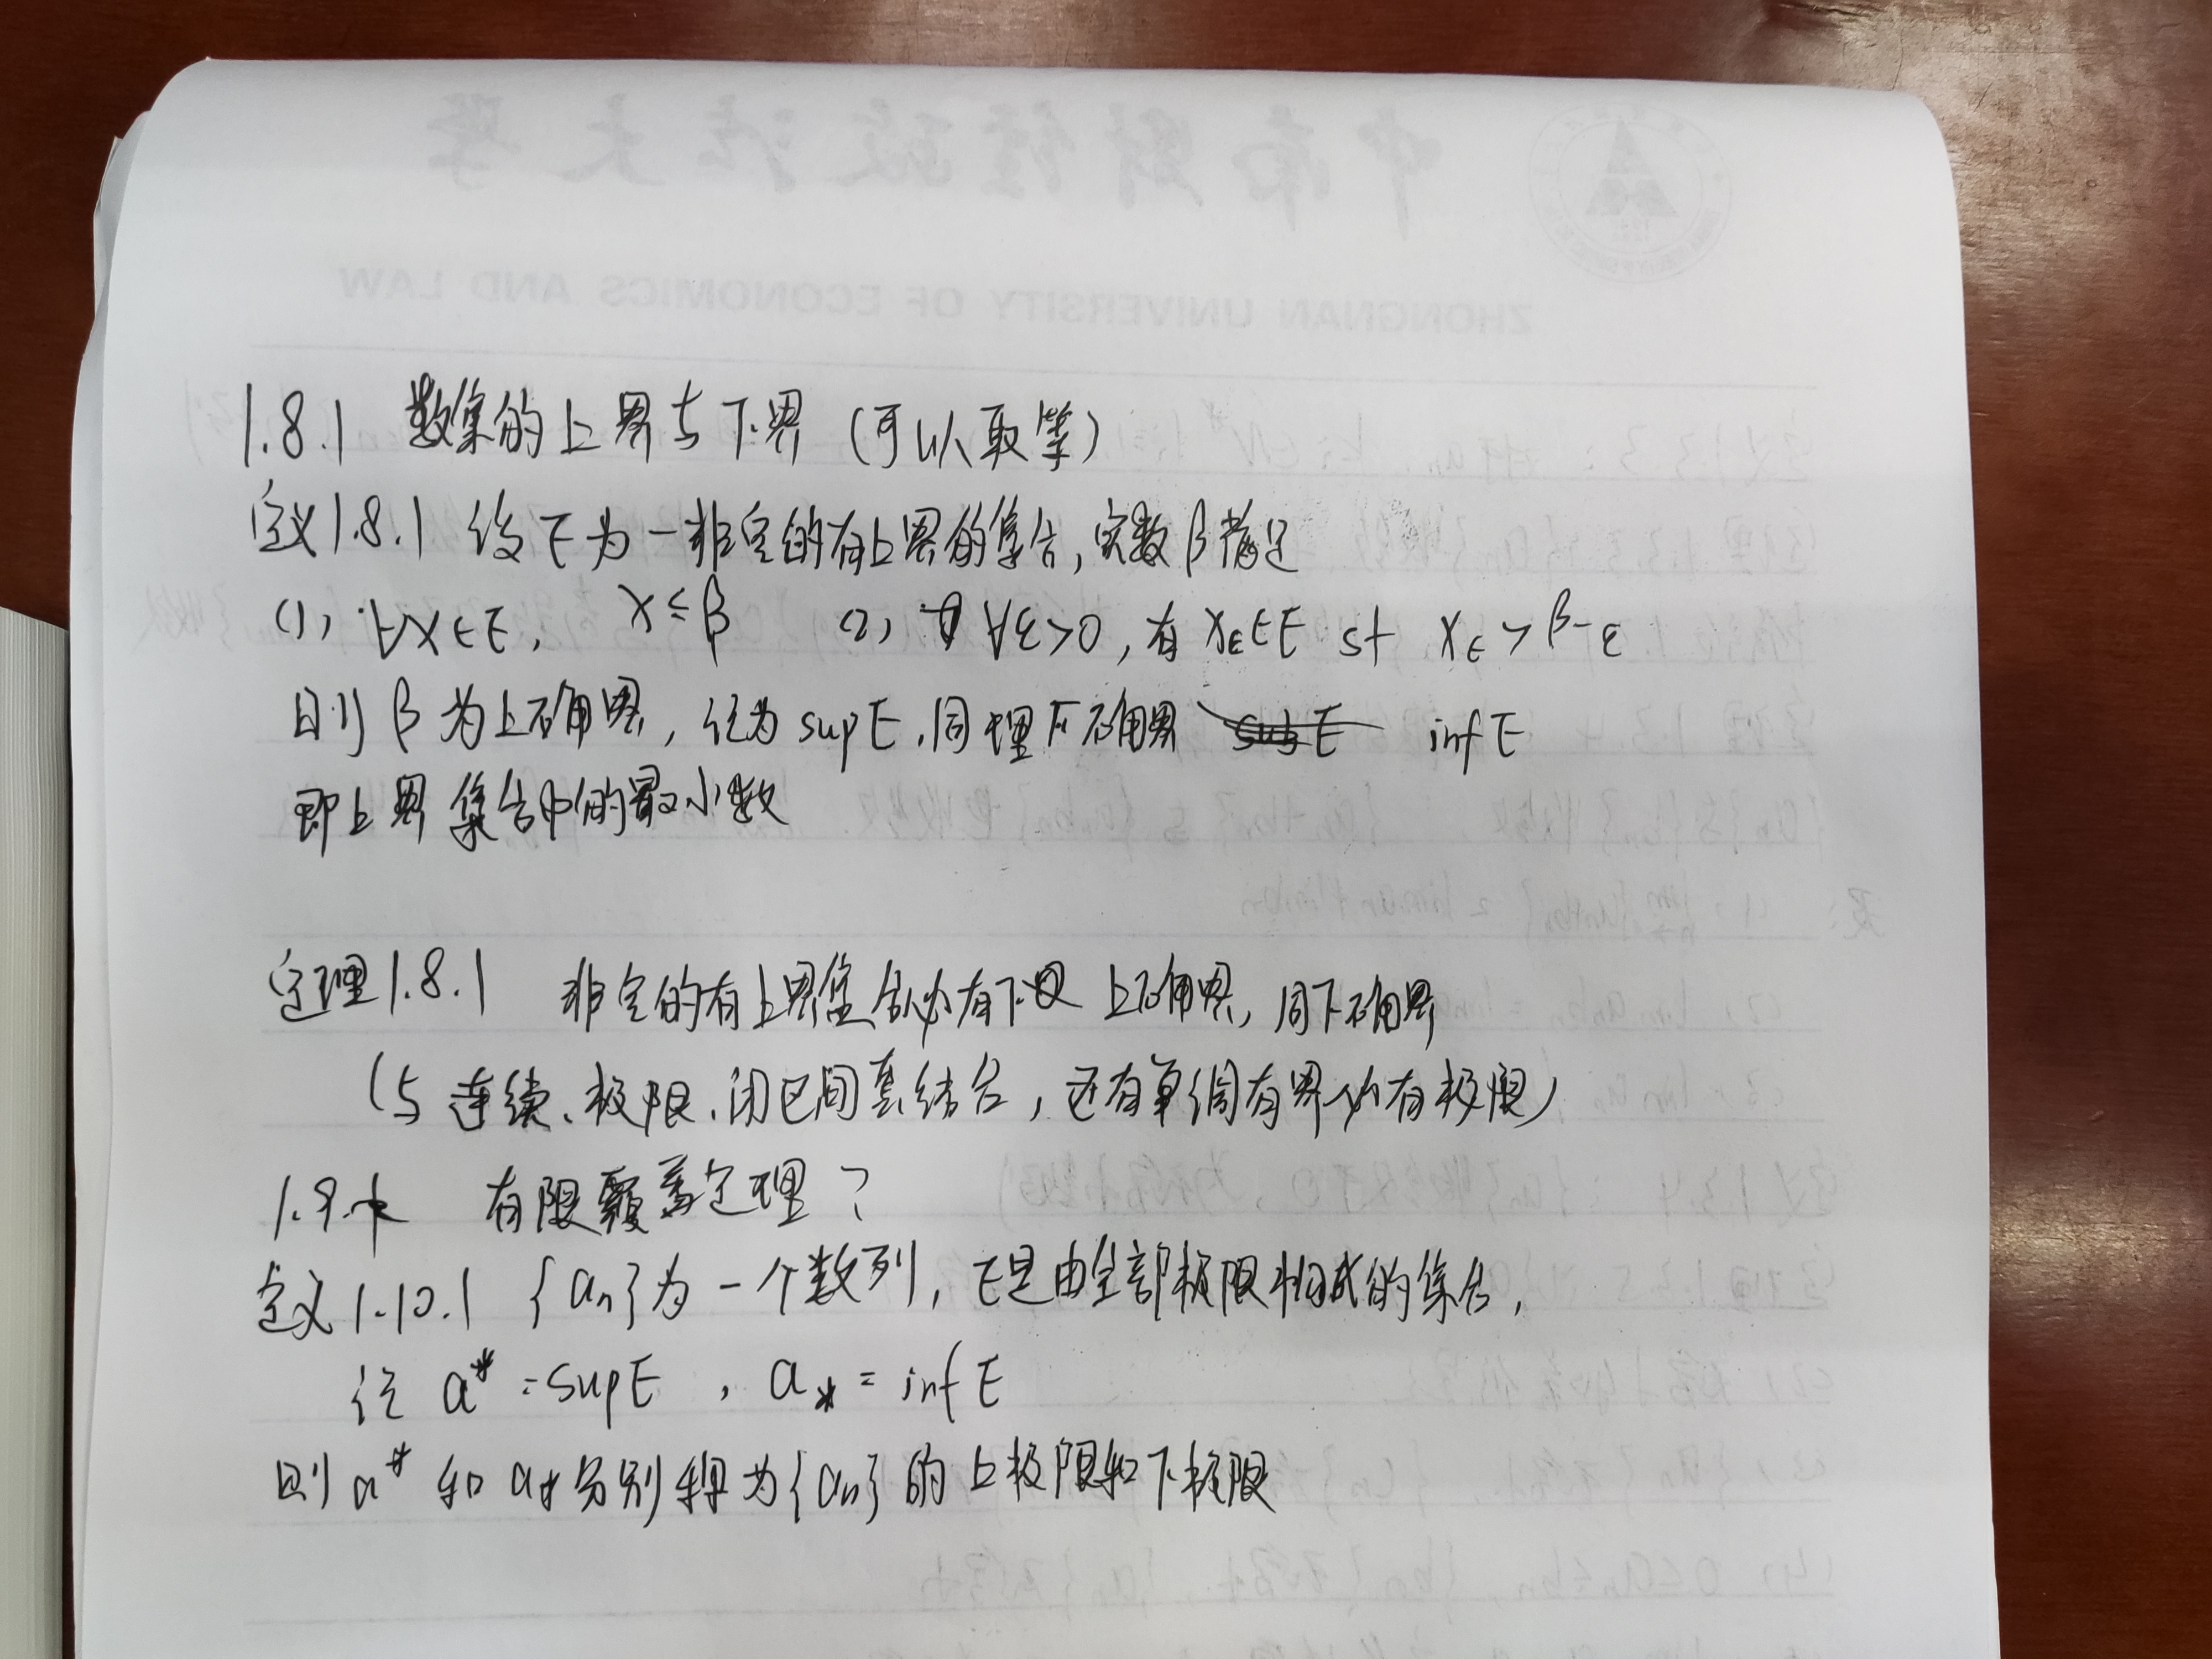 1.8.1 数集的上界与下界（可以取等）
定义1.8.1 设E为一非空的有上界的集合，实数β满足
(1) ∀x∈E， x≤β (2) ∀ε>0，有 xε∈E st xε>β-ε
则β为上确界，记为supE，同理下确界 infE
即上界集合中的最小数
定理1.8.1 非空的有上界集合必有上确界，同下确界
（与连续、极限、闭区间套结合，还有单调有界必有极限）
1.9.* 有限覆盖定理？
定义1.10.1 {an}为一个数列，E是由全部极限构成的集合，
记 a*=supE ，a*=infE
则a*和a*分别称为{an}的上极限和下极限